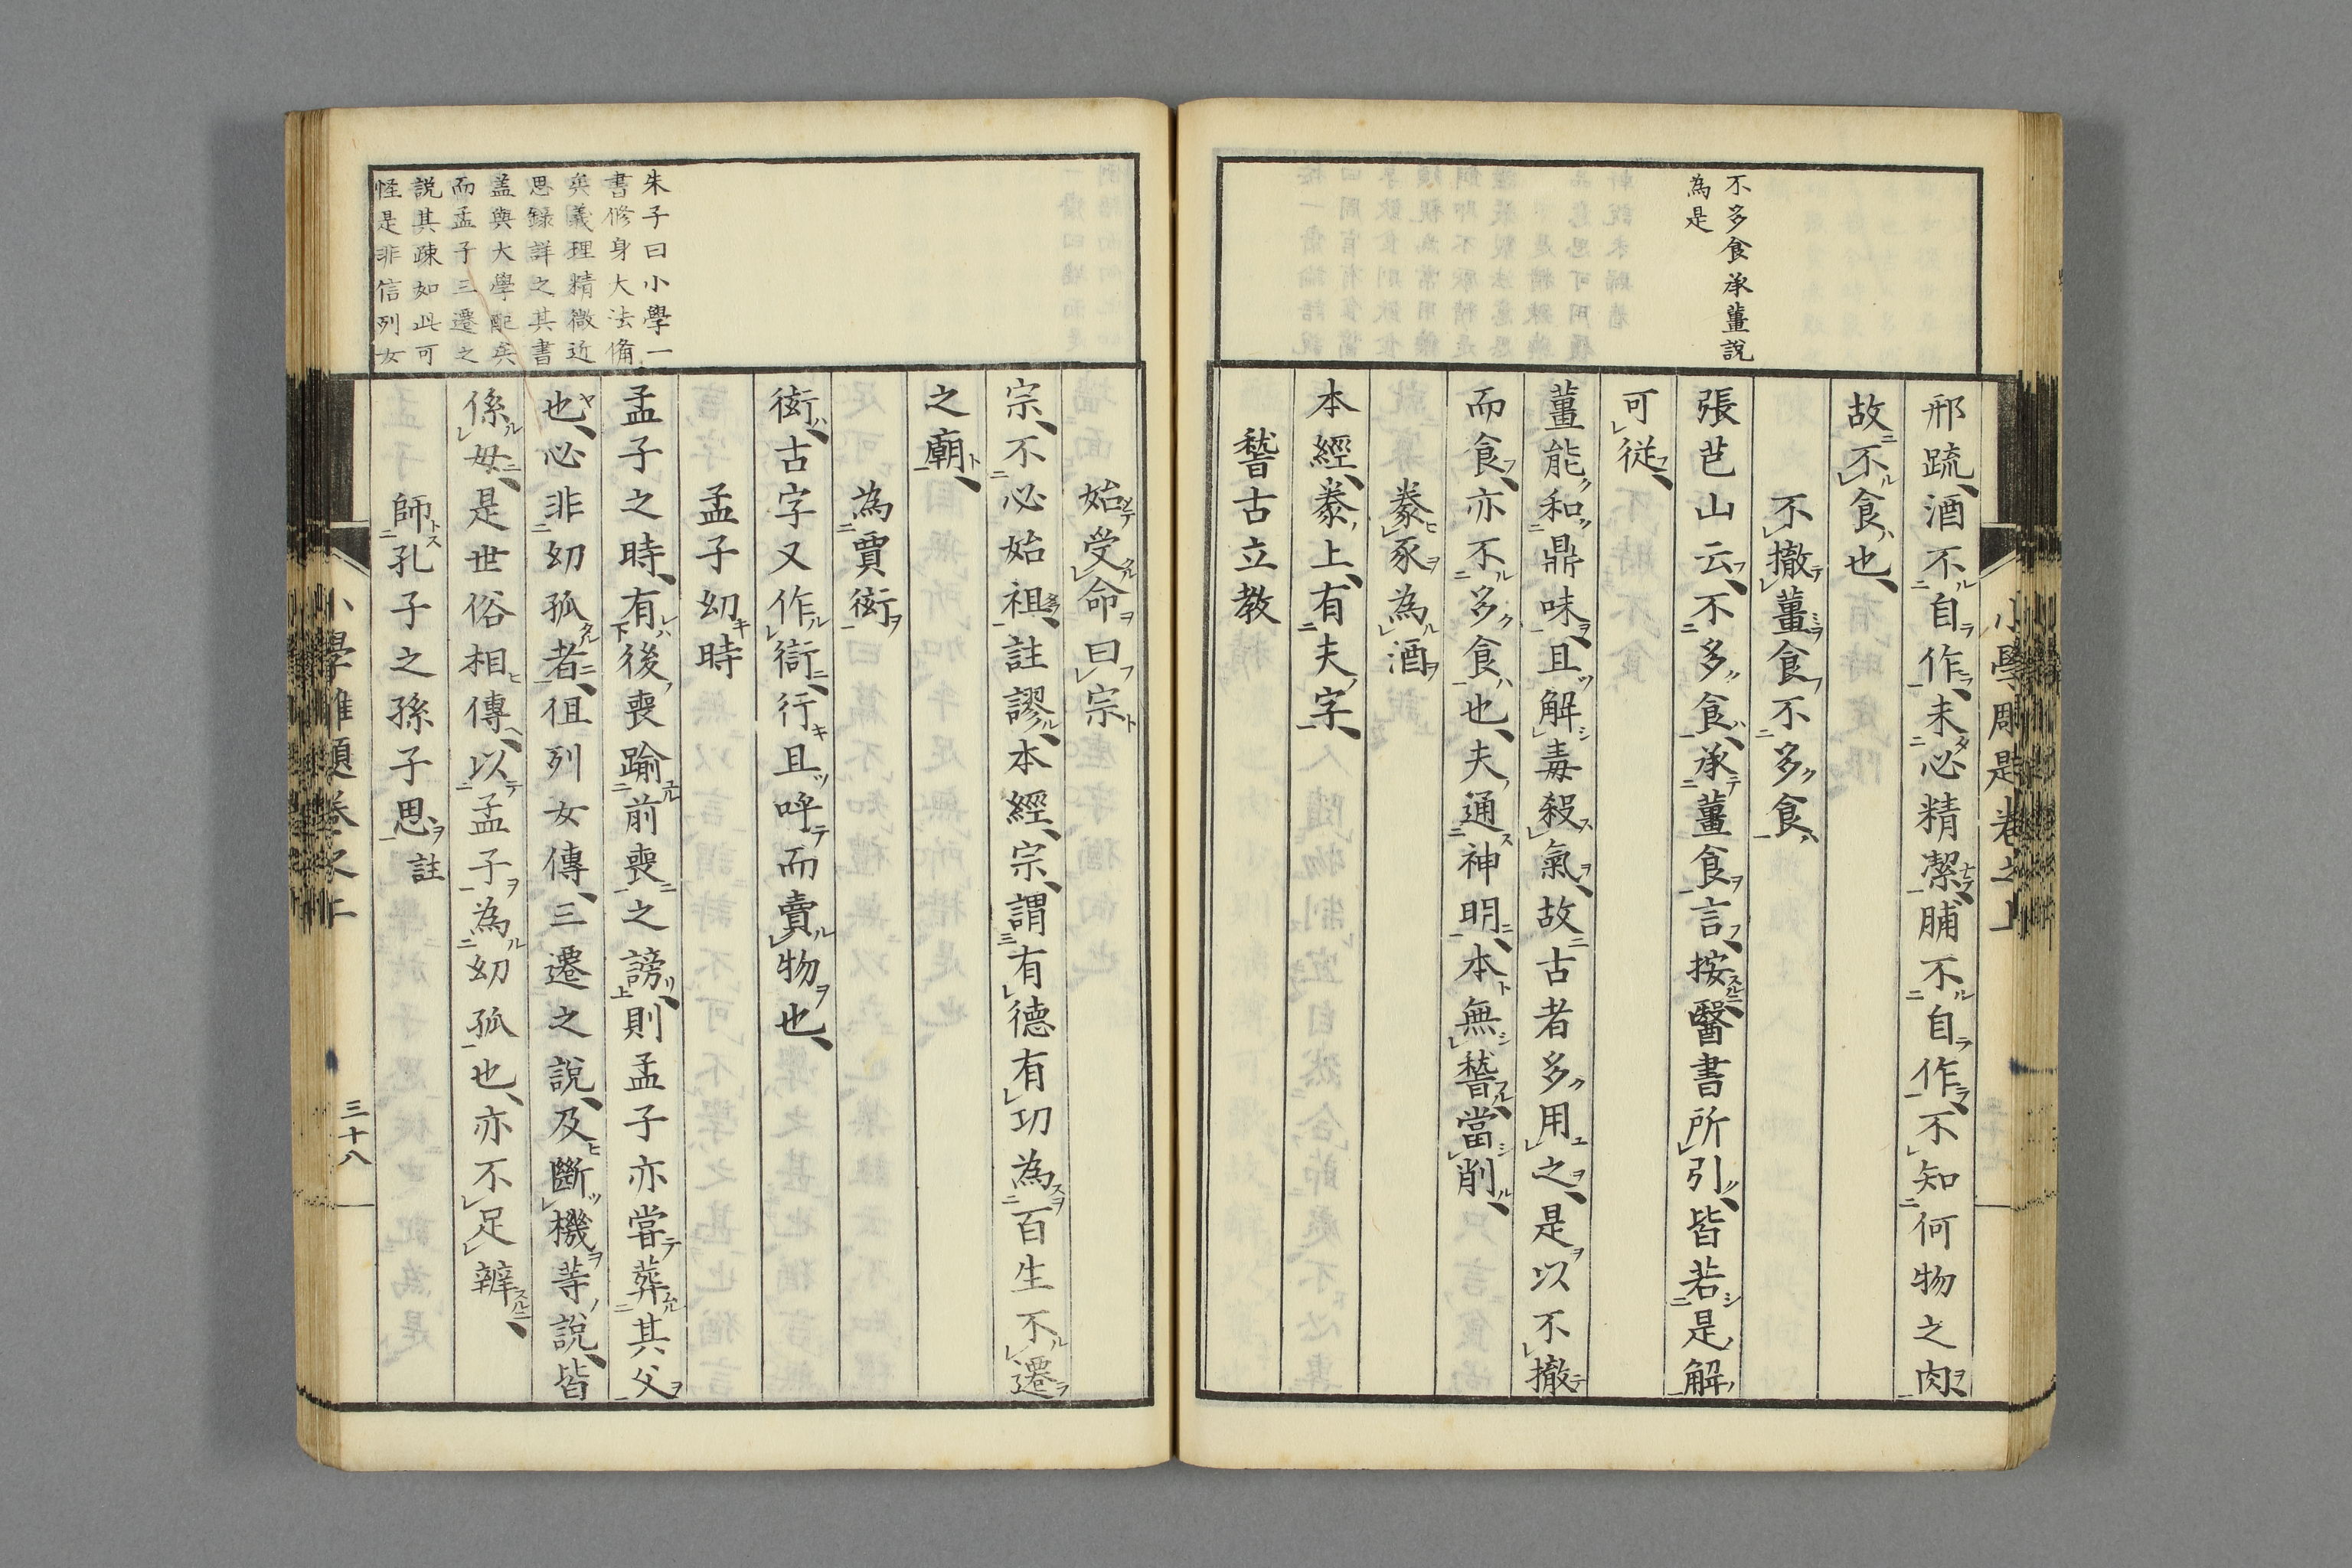 不多食承薑說
為是
邢䟽酒不自作未必精潔脯不自作不知何物之肉
故不食也
不撤薑食不多食
張芑山云不多食承薑食言按醫書所引皆若是解
可從
薑能和鼎味且解毒殺氣故古者多用之是以不撤
而食亦不多食也夫通神明本無稽當削
豢豕為酒
本經豢上有夫字
稽古立教
朱子曰小學一
書修身大法備
矣義理精微近
思録詳之其書
盖與大學配矣
而孟子三遷之
說其疎如此可
怪是非信列女
始受命曰宗
宗不必始祖註謬本經宗謂有德有功為百生不遷
之廟
為賈衒
衒古字又作衙行且呼而賣物也
孟子幼時
孟子之時有後喪踰前喪之謗則孟子亦嘗葬其父
也必非幼孤者徂列女傳三遷之說及斷機等說皆
係毋是世俗相傳以孟子為幼孤也亦不足辨
師孔子之孫子思註
三十八